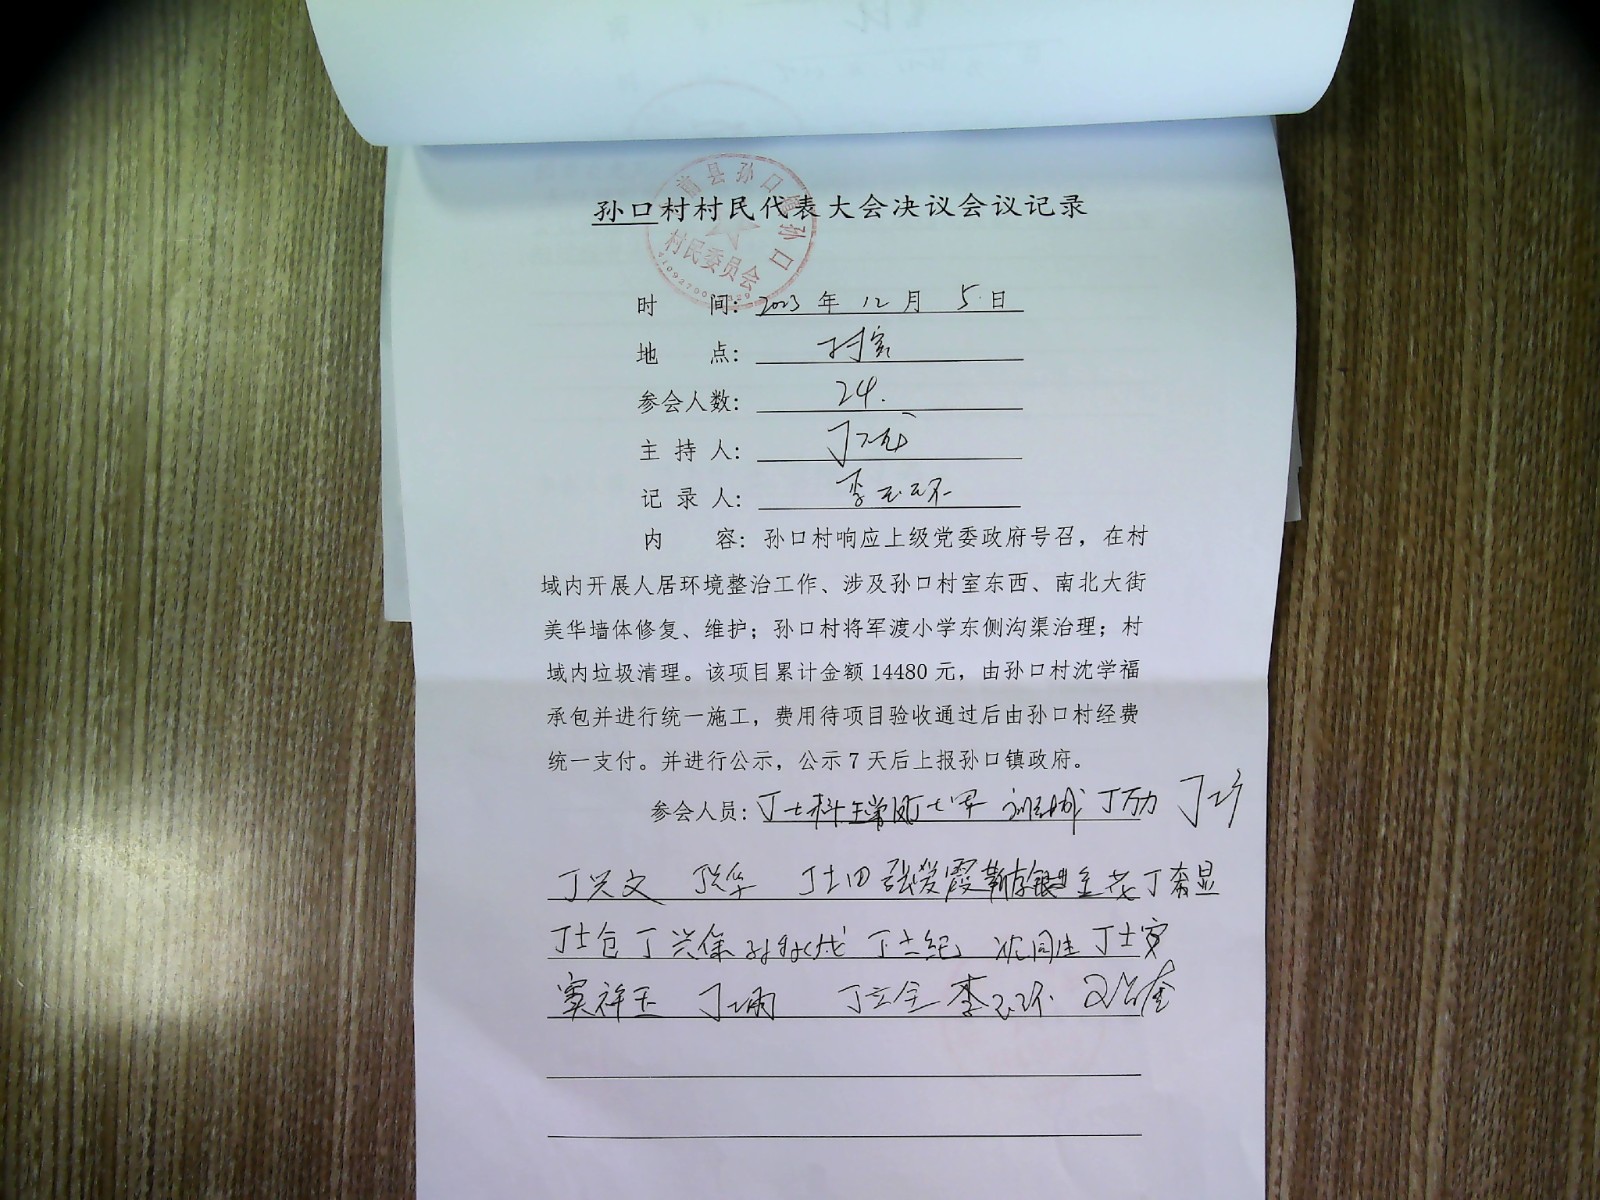 孙口村村民代表大会决议会议记录
县孙口镇孙口
村民委员会
时 间: 2023 年 12 月 5 日
地 点: 村室
参会人数: 24.
主 持 人: 丁
记 录 人: 李玉环
内 容: 孙口村响应上级党委政府号召，在村
域内开展人居环境整治工作、涉及孙口村室东西、南北大街
美华墙体修复、维护；孙口村将军渡小学东侧沟渠治理；村
域内垃圾清理。该项目累计金额 14480 元，由孙口村沈学福
承包并进行统一施工，费用待项目验收通过后由孙口村经费
统一支付。并进行公示，公示 7 天后上报孙口镇政府。
参会人员: 丁士科 丁士军 丁万力
丁兴文 丁士田 张爱霞
丁士仓 丁兴俭 丁士纪 沈同生 丁士宽
窦祥玉 丁立全 李玉环